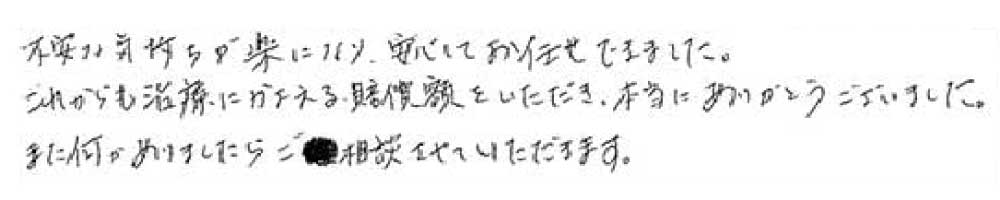 不安な気持ちが楽になり、安心してお任せできました。
これからも治療にガよえる賠償額をいただき、本当にありがとうございました。
また何かありましたらご相談させていただきます。